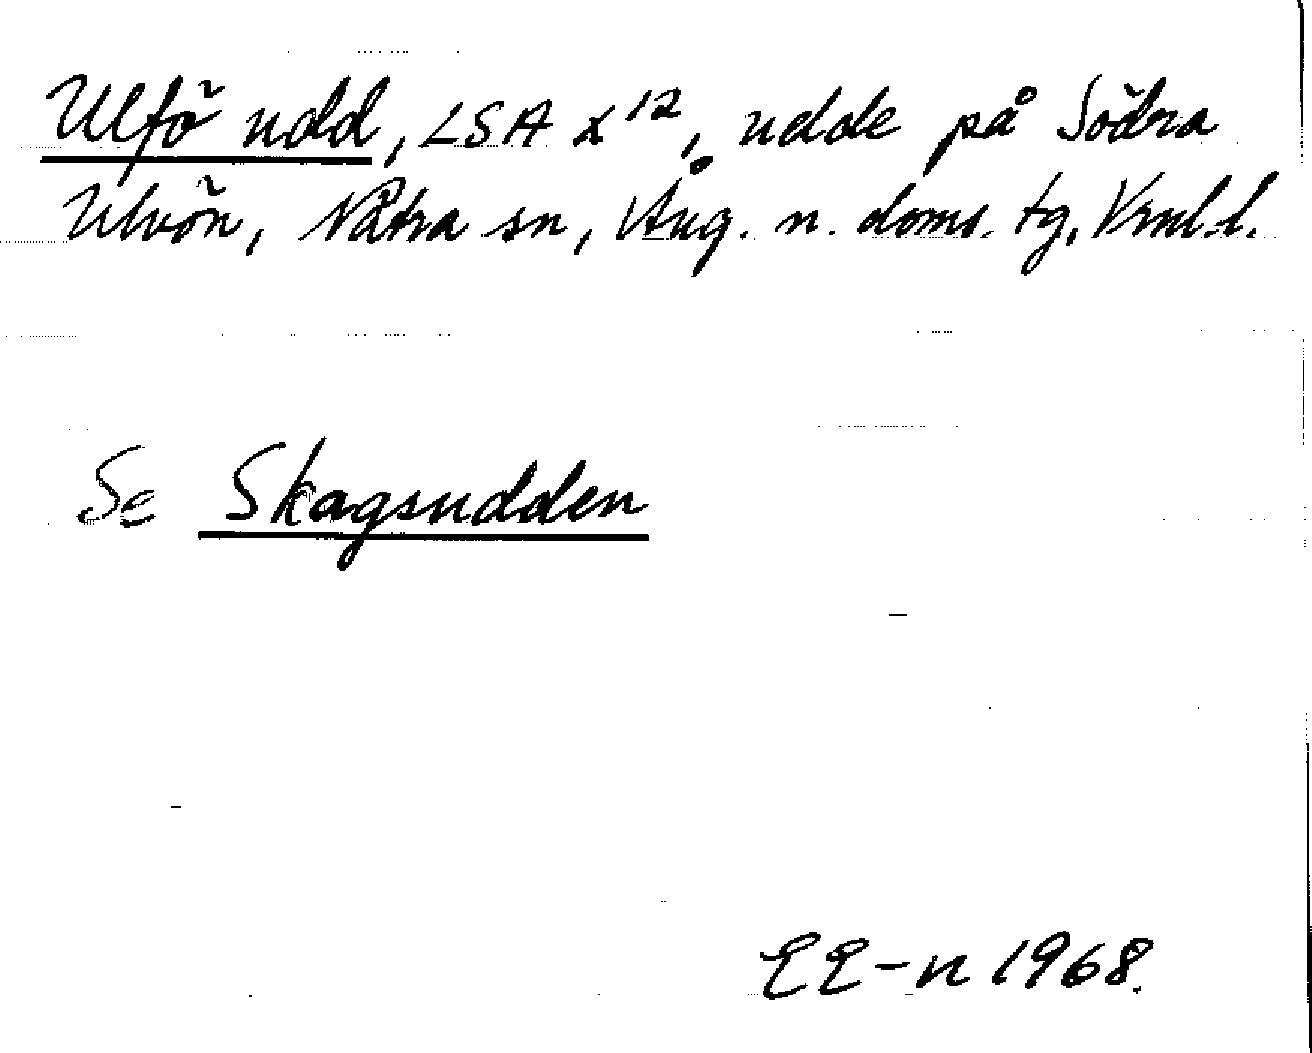 Ulfö udd, LSA X¹², udde på Södra
Ulvön, Nätra sn, Ång. n. doms. tg, Vrnl l.
Se Skagsudden
EE-n 1968.